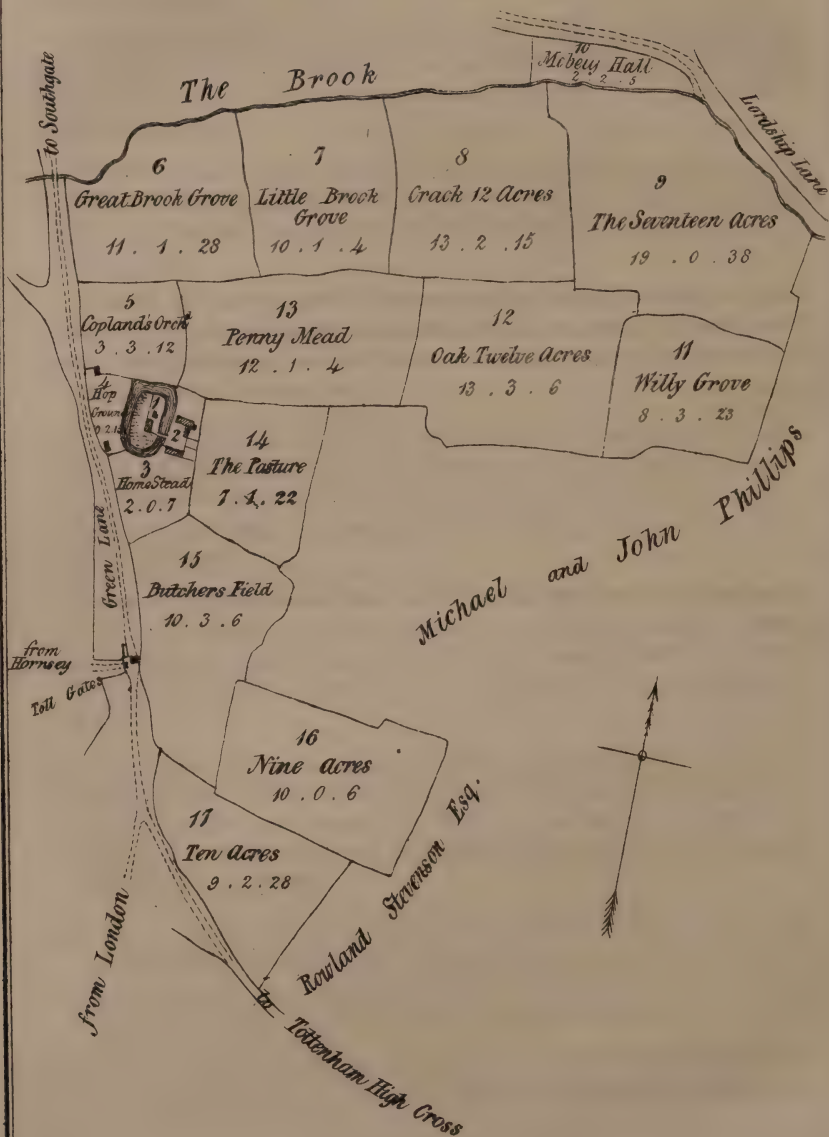 to Southgate
The Brook
10
Mcbery Hall
2 . 2 . 5
Lordship Lane
6
Great Brook Grove
11 . 1 . 28
7
Little Brook
Grove
10 . 1 . 4
8
Crack 12 Acres
13 . 2 . 15
9
The Seventeen Acres
19 . 0 . 38
5
Copland's Orch^t
3 . 3 . 12
13
Penny Mead
12 . 1 . 4
12
Oak Twelve Acres
13 . 3 . 6
11
Willy Grove
8 . 3 . 23
4
Hop
Ground
1
2
3
Home Stead
2 . 0 . 7
14
The Pasture
7 . 1 . 22
Green Lane
15
Butchers Field
10 . 3 . 6
Michael and John Phillips
from
Hornsey
Toll Gates
16
Nine Acres
10 . 0 . 6
17
Ten Acres
9 . 2 . 28
Rowland Stevenson Esq.
from London
to Tottenham High Cross